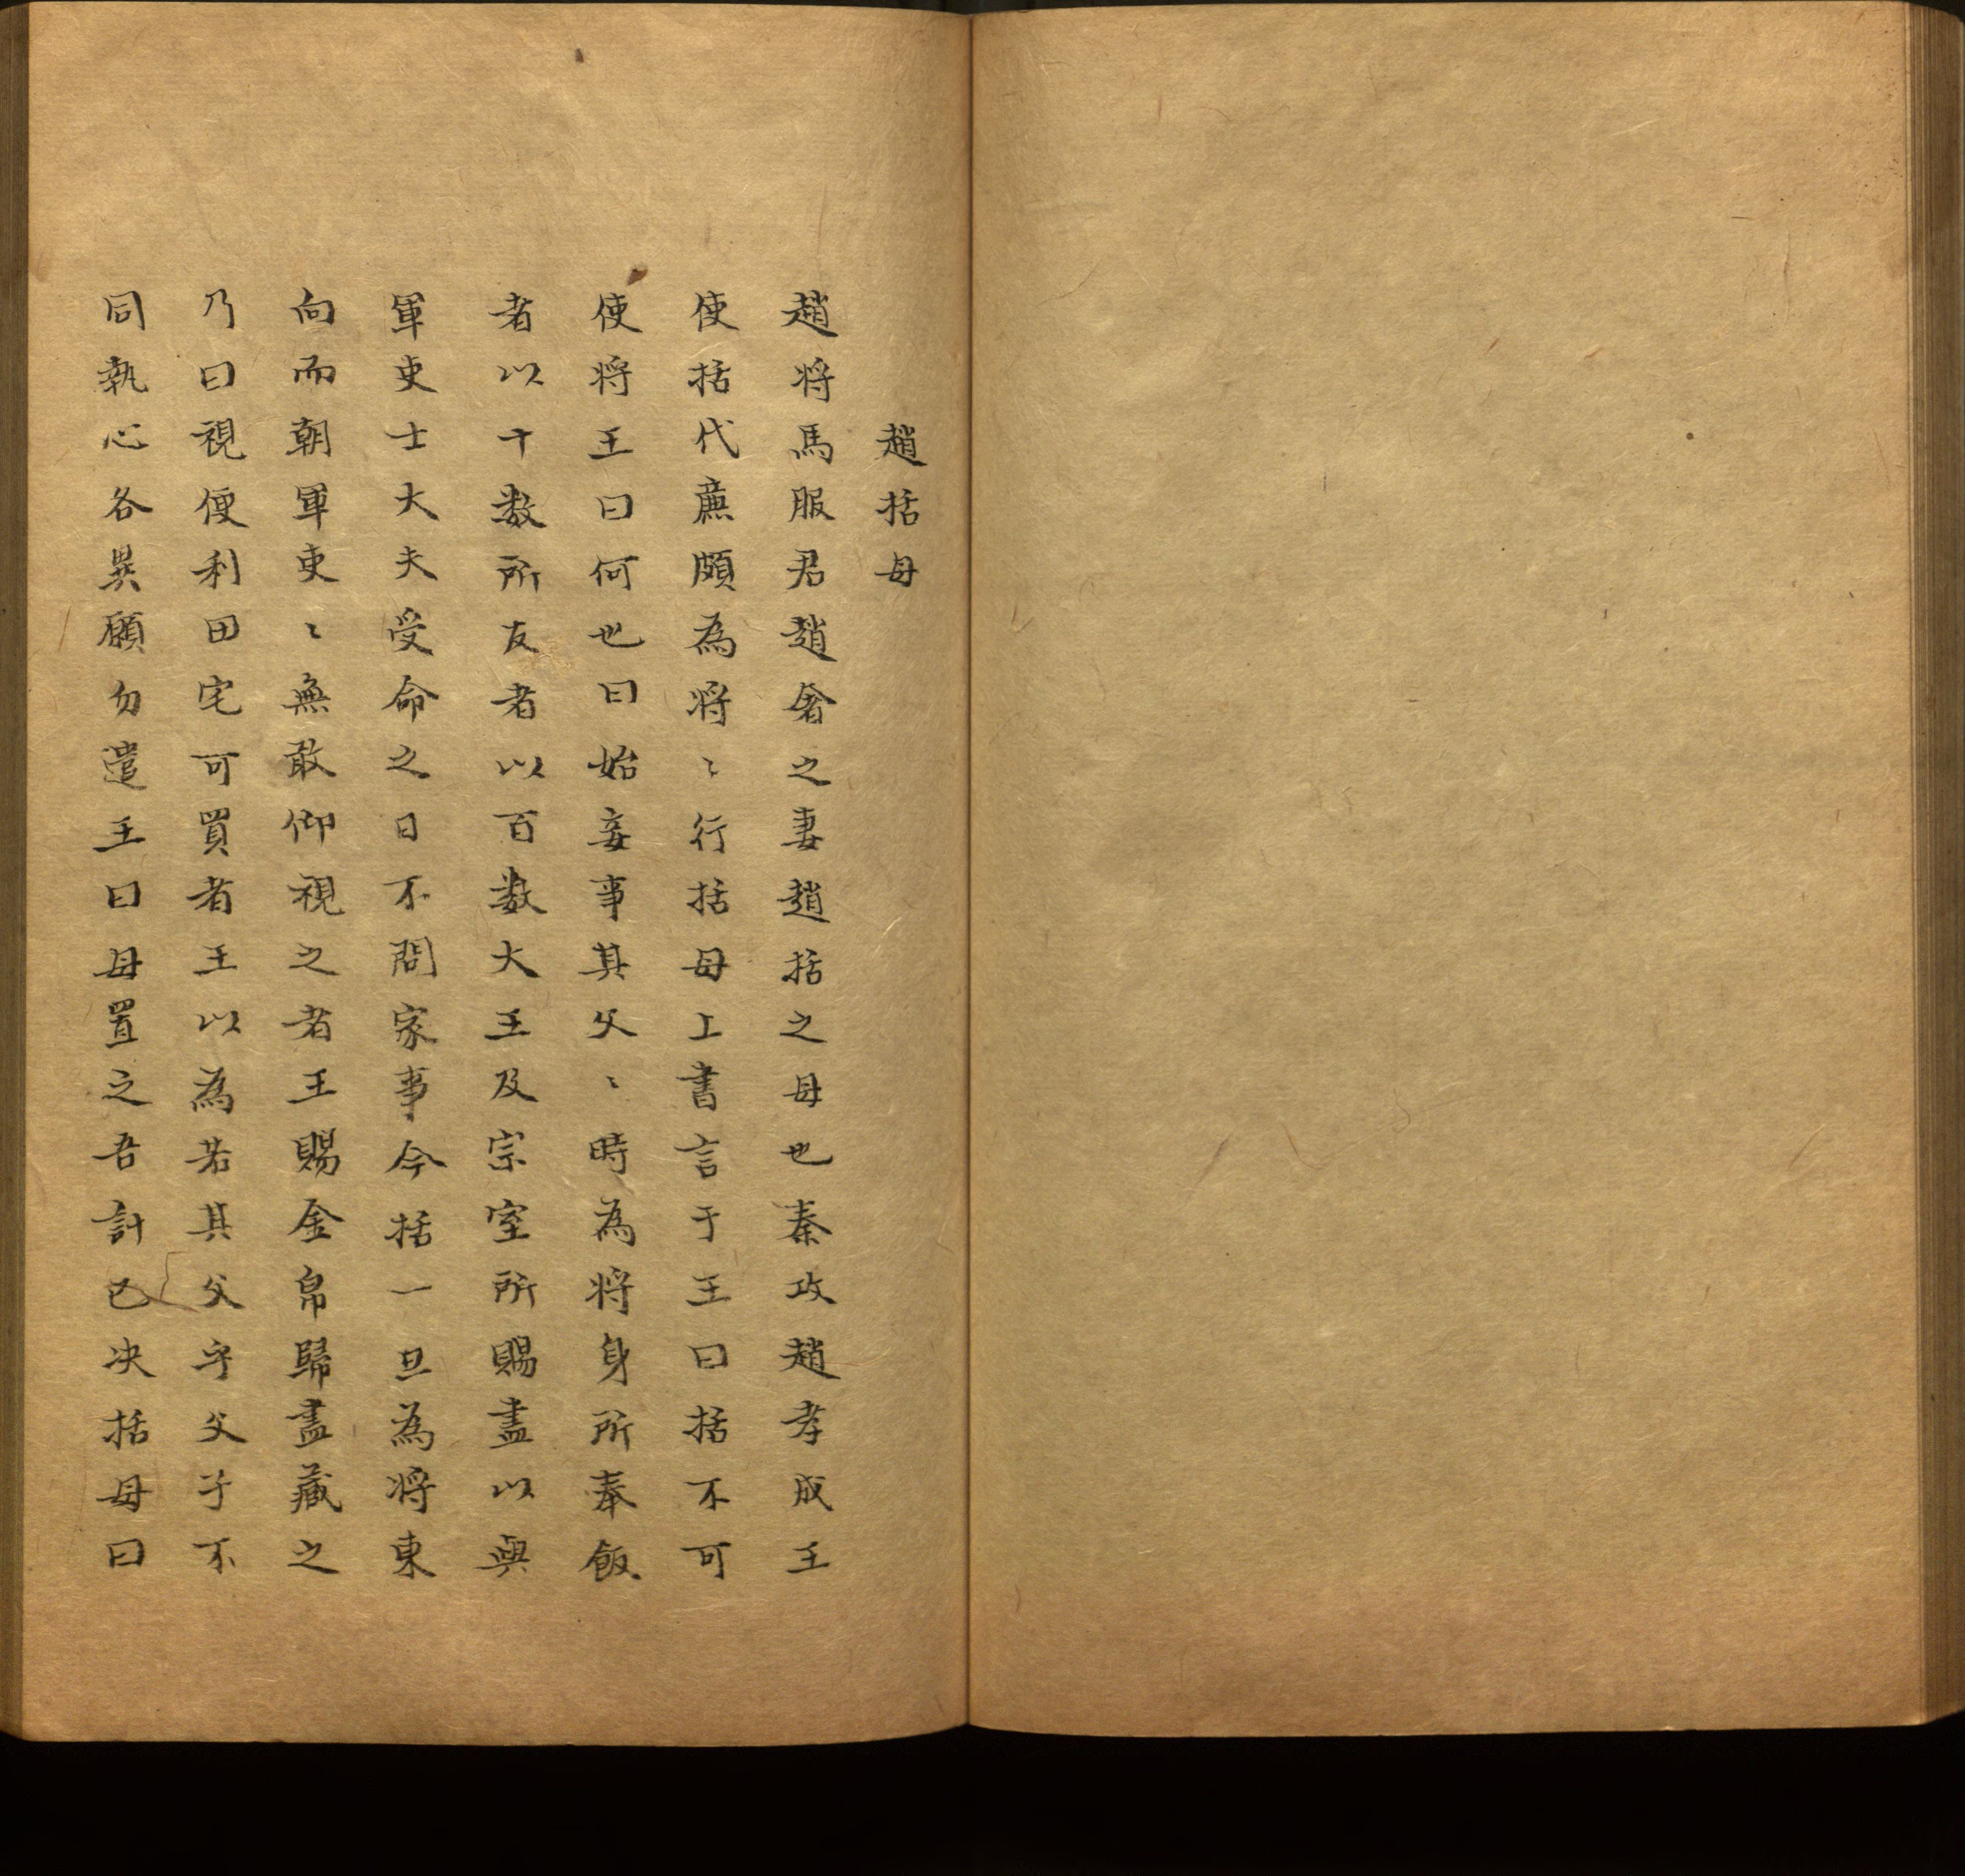 趙括母
趙将馬服君趙奢之妻趙括之母也秦攻趙孝成王
使括代廉頗為将〻行括母上書言于王曰括不可
使将王曰何也曰始妾事其父〻時為将身所奉飯
者以十数所友者以百数大王及宗室所賜盡以與
軍吏士大夫受命之日不問家事今括一旦為将東
向而朝軍吏〻無敢仰視之者王賜金帛歸盡藏之
乃曰視便利田宅可買者王以為若其父乎父子不
同執心各異願勿遣王曰母置之吾計已决括母曰